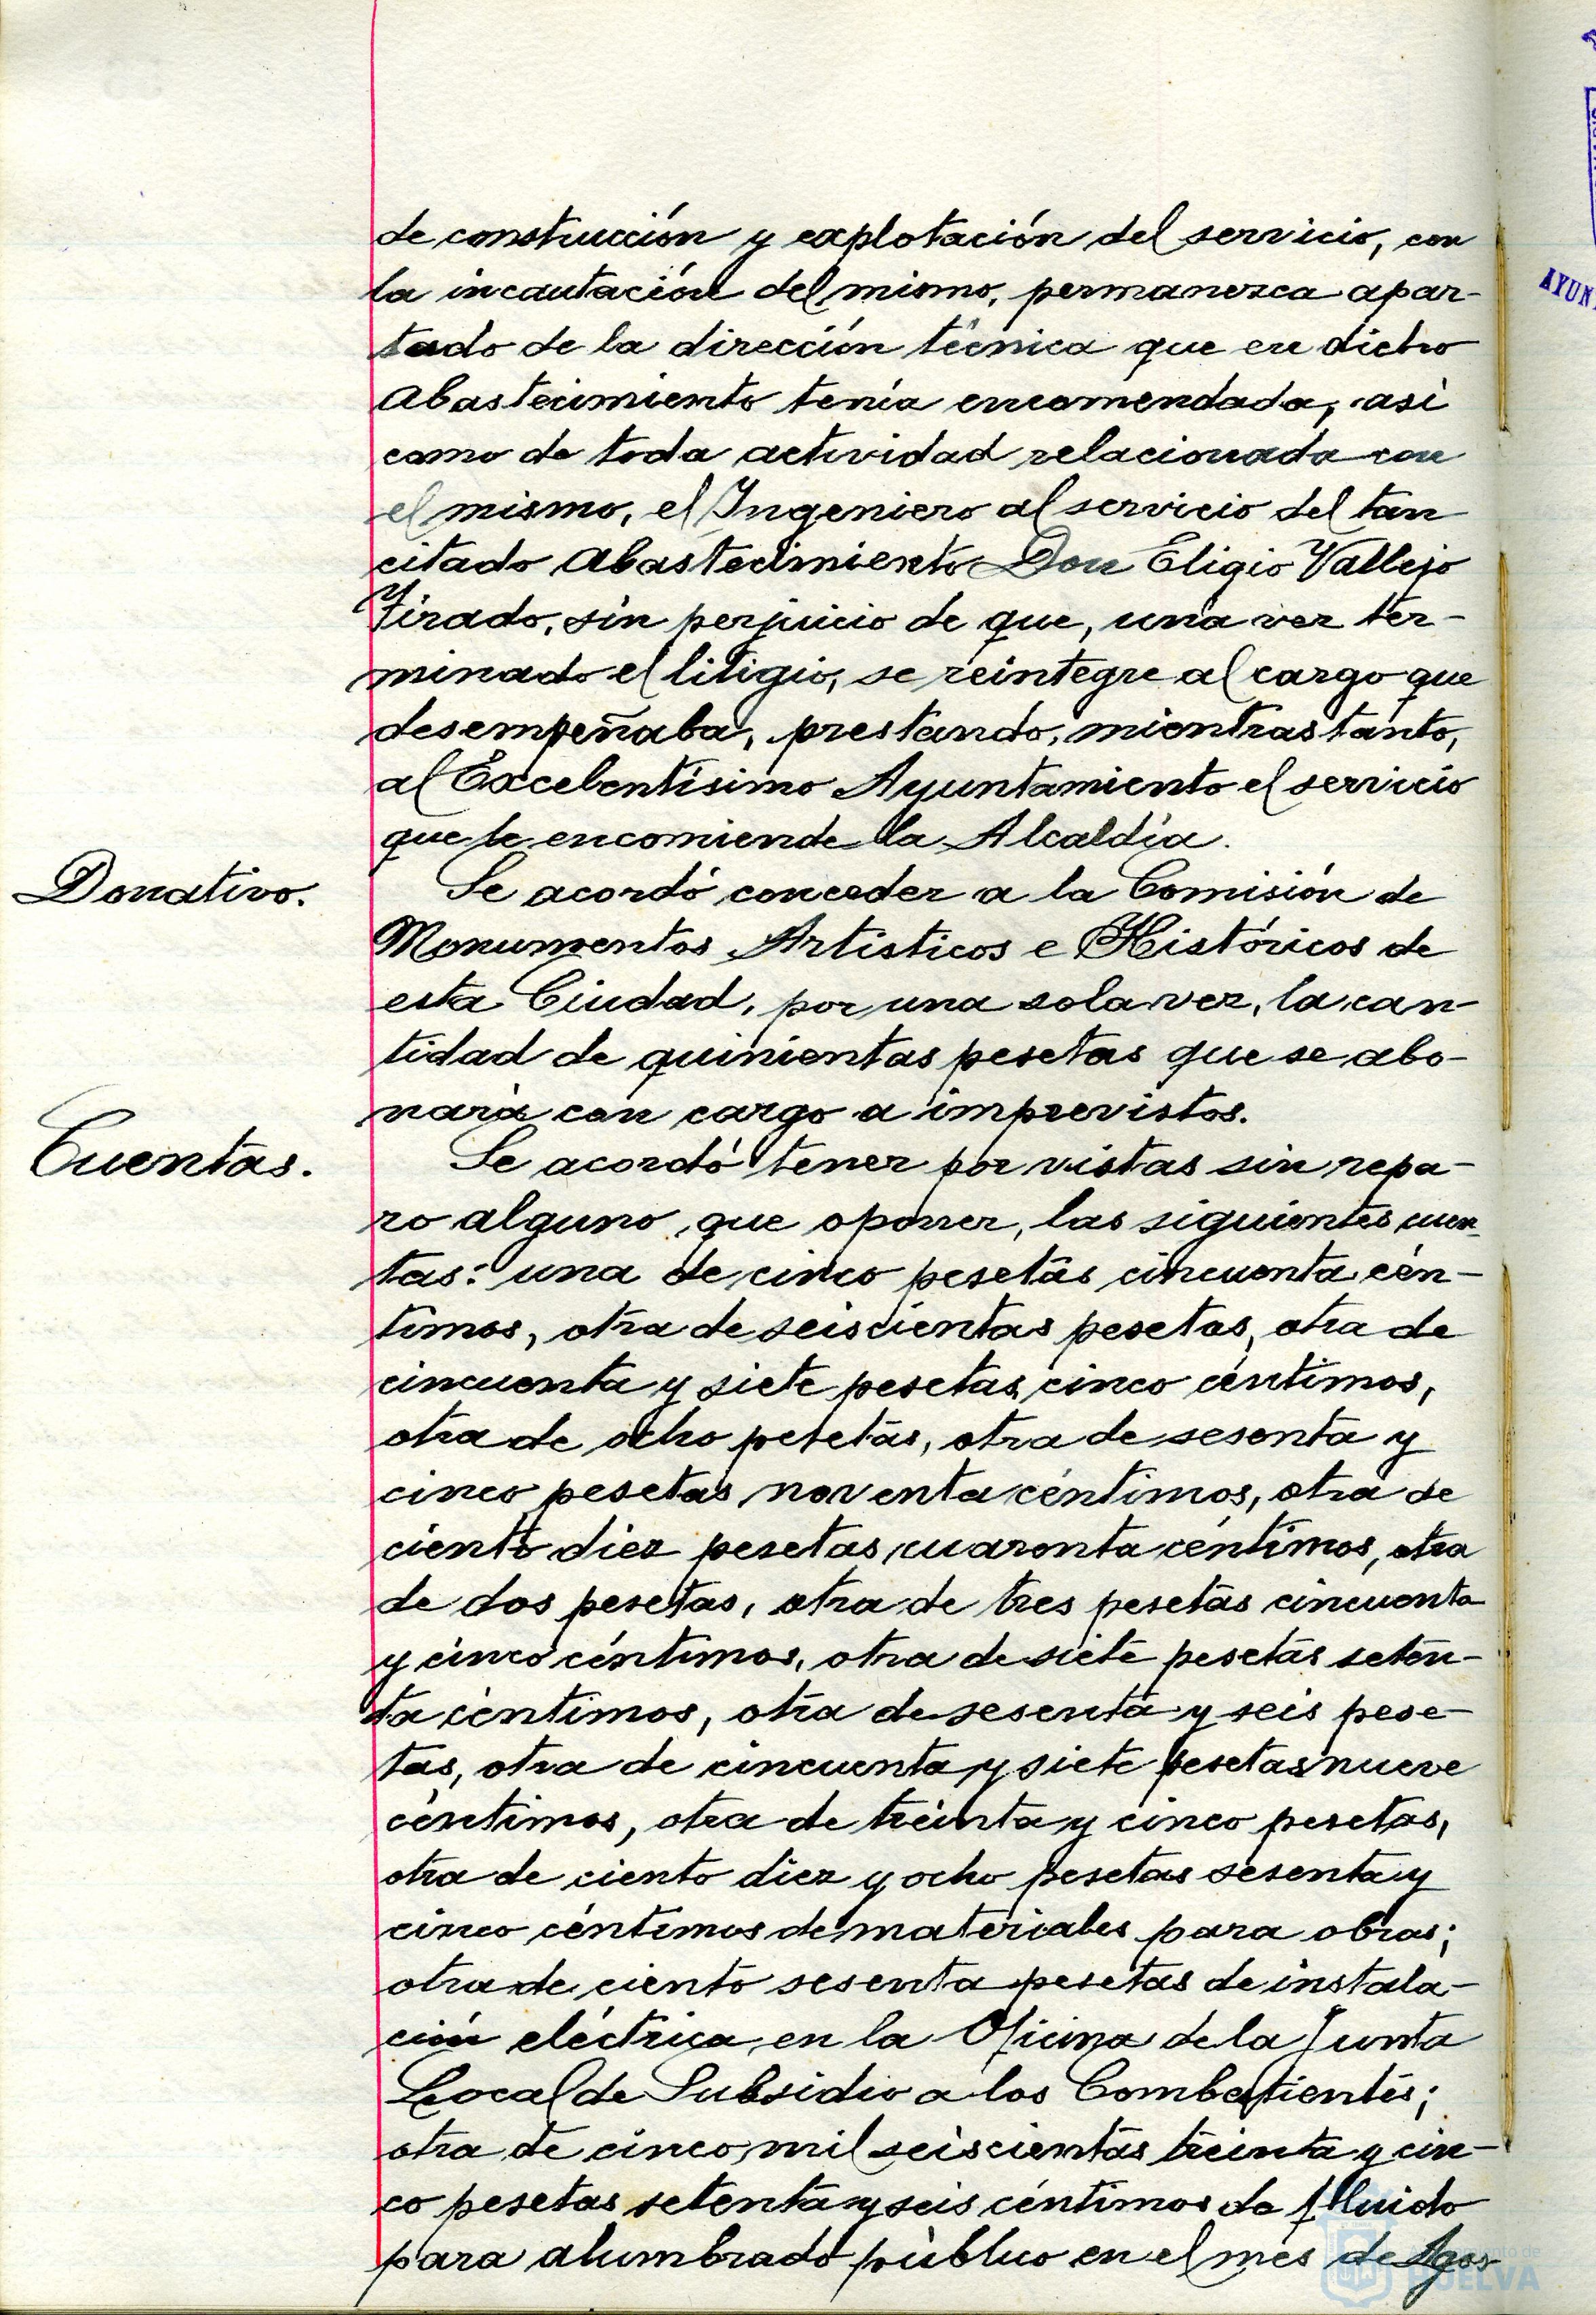 de construcción y explotación del servicio, con
la incautación del mismo, permanezca apar-
tado de la dirección técnica que en dicho
Abastecimiento tenía encomendada, así
como de toda actividad relacionada con
el mismo, el Ingeniero al servicio del tan
citado Abastecimiento Don Eligio Vallejo
Tirado, sin perjuicio de que, una vez ter-
minado el litigio, se reintegre al cargo que
desempeñaba, prestando, mientras tanto,
al Excelentísimo Ayuntamiento el servicio
que le encomiende la Alcaldía.
Donativo.
Se acordó conceder a la Comisión de
Monumentos Artísticos e Históricos de
esta Ciudad, por una sola vez, la can-
tidad de quinientas pesetas que se abo-
nará con cargo a imprevistos.
Cuentas.
Se acordó tener por vistas sin repa-
ro alguno que oponer, las siguientes cuen-
tas: una de cinco pesetas cincuenta cén-
timos, otra de seiscientas pesetas, otra de
cincuenta y siete pesetas cinco céntimos,
otra de ocho pesetas, otra de sesenta y
cinco pesetas noventa céntimos, otra de
ciento diez pesetas cuarenta céntimos, otra
de dos pesetas, otra de tres pesetas cincuenta
y cinco céntimos, otra de siete pesetas seten-
ta céntimos, otra de sesenta y seis pese-
tas, otra de cincuenta y siete pesetas nueve
céntimos, otra de treinta y cinco pesetas,
otra de ciento diez y ocho pesetas sesenta y
cinco céntimos de materiales para obras;
otra de ciento sesenta pesetas de instala-
ción eléctrica en la Oficina de la Junta
Local de Subsidio a los Combatientes;
otra de cinco mil seiscientas treinta y cin-
co pesetas setenta y seis céntimos de flluido
para alumbrado público en el mes de Agos-
AYUN
Ayuntamiento de
HUELVA